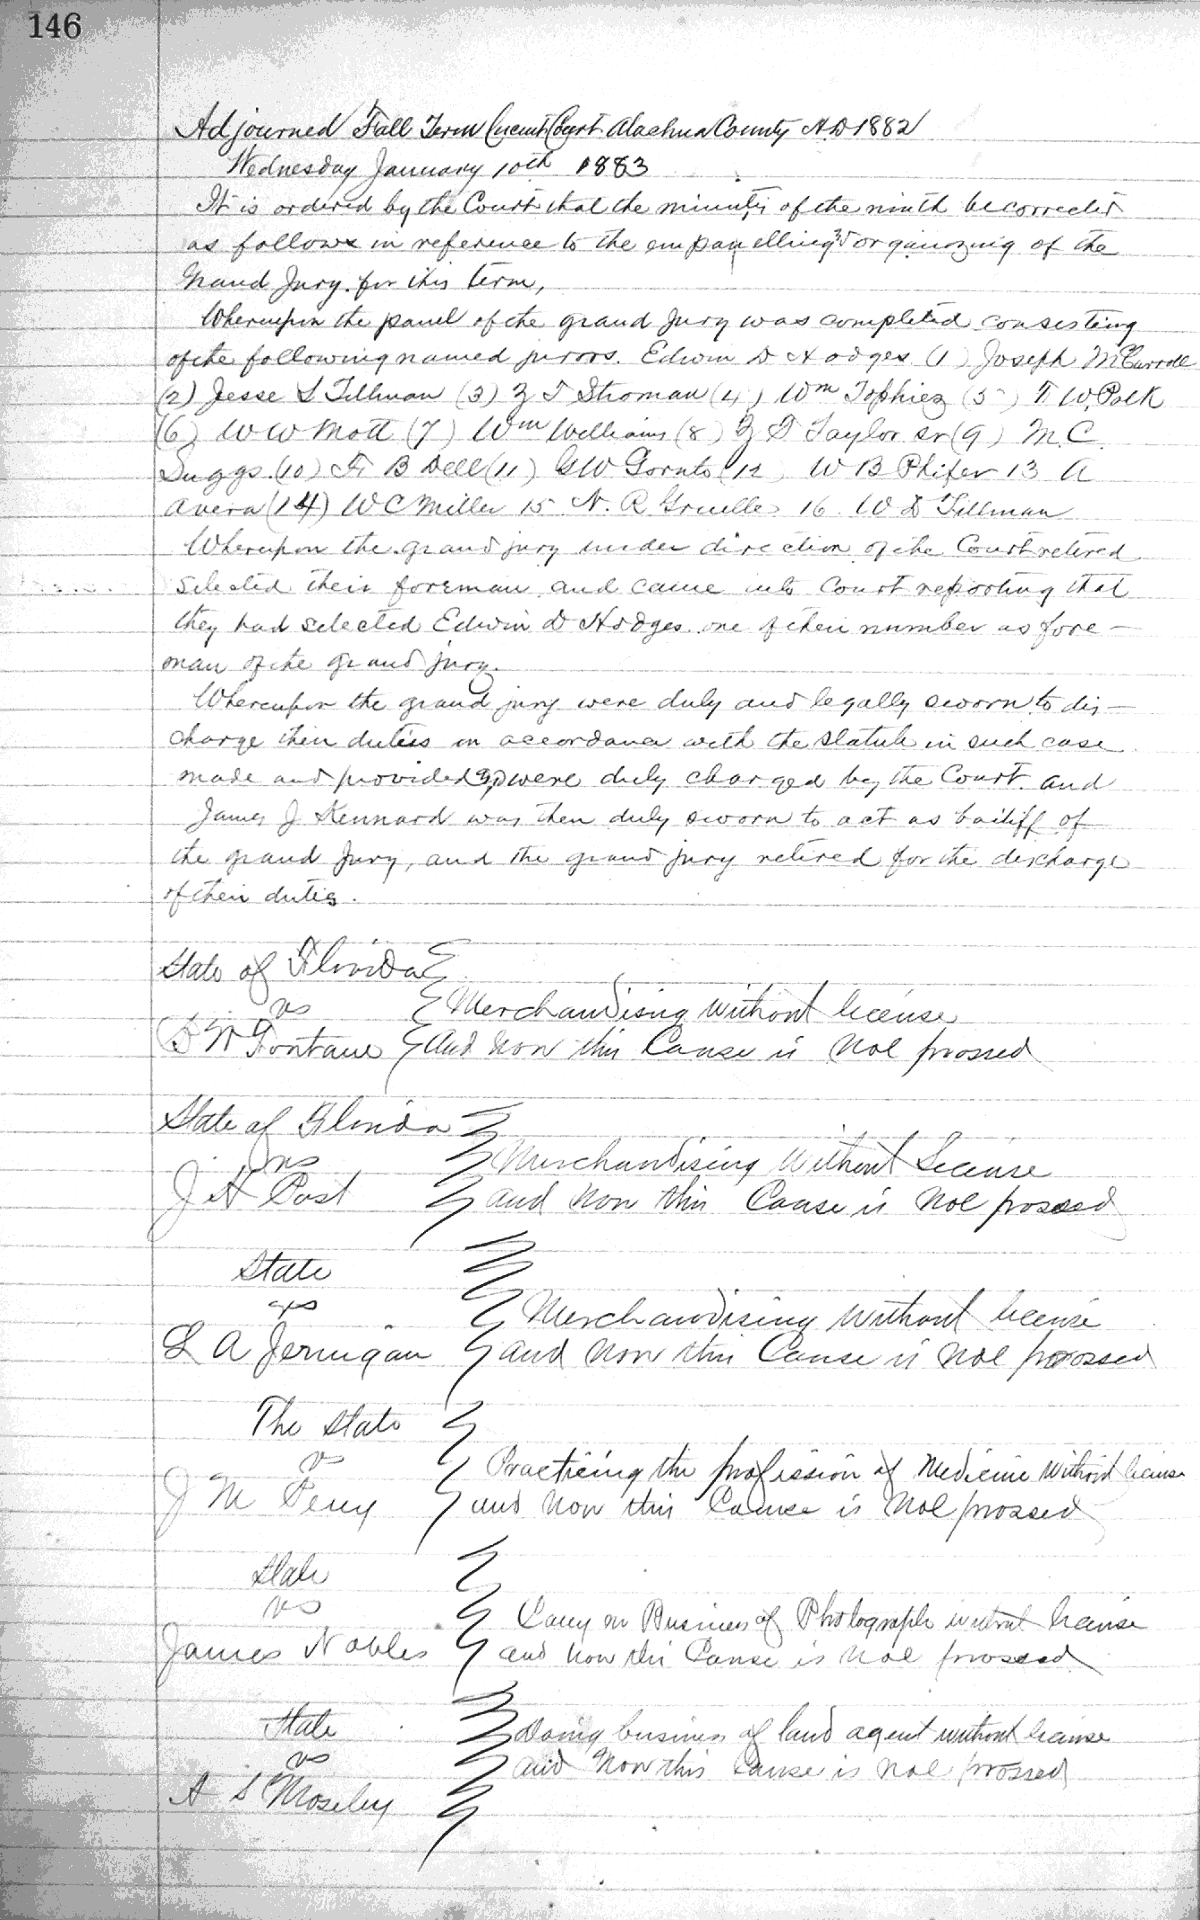 146
Adjourned Fall Term Circuit Court Alachua County A.D 1882
Wednesday January 10th 1883
It is ordered by the Court that the minutes of the ninth be corrected
as follows in reference to the empanelling & organizing of the
Grand Jury for this term,
Whereupon the panel of the grand Jury was completed consisting
of the following named jurors. Edwin D Hodges (1) Joseph McCarroll
(2) Jesse S Tillman (3) Z T Stroman (4) Wm Tophiez (5) F W. Polk
(6) W W Mott (7) Wm Williams (8) Z D Taylor sr (9) M. C.
Suggs (10) F. B Dell (11) G W Gornto (12 W B Phifer 13 A
Avera (14) W C Miller 15 N. R Gruelle 16 W D Tillman
Whereupon the grand jury under direction of the Court retired
selected their foreman and came into Court reporting that
they had selected Edwin D Hodges one of their number as fore-
man of the grand jury.
Whereupon the grand jury were duly and legally sworn to dis-
charge their duties in accordance with the statute in such case
made and provided & were duly charged by the Court. and
James J Kennard was then duly sworn to act as bailiff of
the grand Jury, and the grand jury retired for the discharge
of their duties.
State of Florida
vs
Merchandising without license
Fontane
and now this Cause is Nol prossed
State of Florida
vs
Merchandising without License
J H Post
and now this Cause is Nol prossed
State
vs
Merchandising without license
L A Jernigan
and now this Cause is Nol prossed
The State
vs
Practicing the profession of Medicine without license
J M Perry
and now this Cause is Nol prossed
State
vs
Carry on Business of Photograph without license
James Nobles
and now this Cause is Nol prossed
State
Doing business of land agent without license
vs
and Now this Cause is Nol prossed
A S Moseley